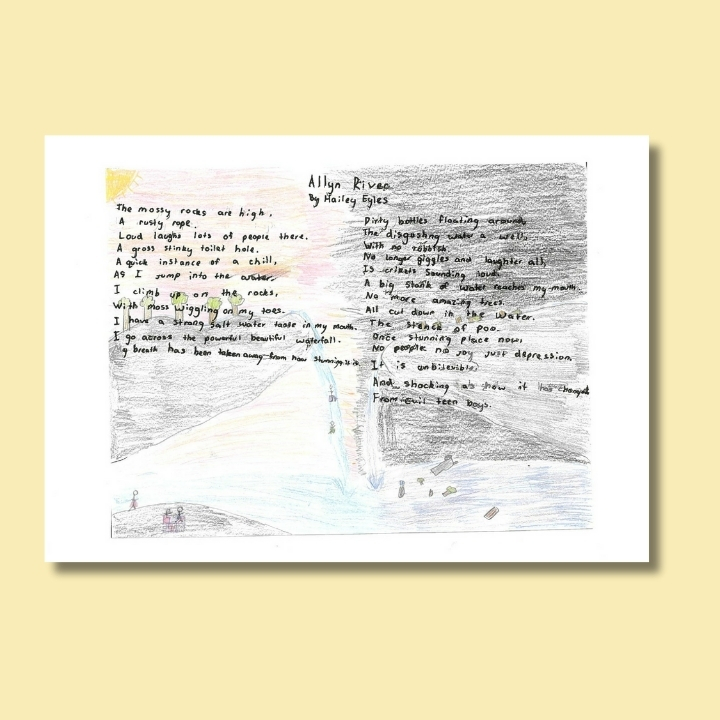 Allyn River
By Hailey Eyles
The mossy rocks are high,
A rusty rope.
Loud laughs lots of people there.
A gross stinky toilet hole.
A quick instance of a chill,
As I jump into the water.
I climb up on the rocks,
With moss wiggling on my toes.
I have a strong salt water taste in my mouth.
I go across the powerful beautiful waterfall.
breath has been taken away from how stunning it is.
Dirty bottles floating around
The disgosting water a well,
With no
No longer giggles and laughter all,
Is crikets sounding loud.
A big stank of water reaches my mouth.
No more amazing trees.
All cut down in the water.
The stence of poo.
Once stunning place now,
No people no joy just depression.
It is unbilevible
And shocking as how it has
From evil teen boys.